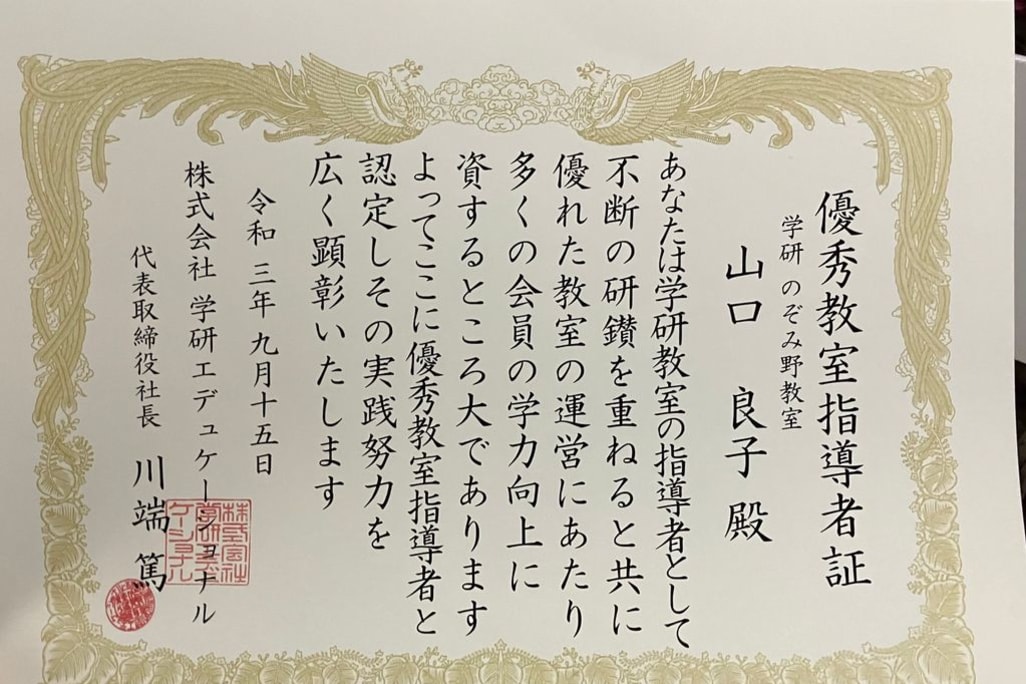 優秀教室指導者証
学研 のぞみ野教室
山口 良子 殿
あなたは学研教室の指導者として
不断の研鑚を重ねると共に
優れた教室の運営にあたり
多くの会員の学力向上に
資するところ大であります
よってここに優秀教室指導者と
認定しその実践努力を
広く顕彰いたします
令和 三年 九月十五日
株式会社 学研エデュケーショナル
代表取締役社長 川端 篤